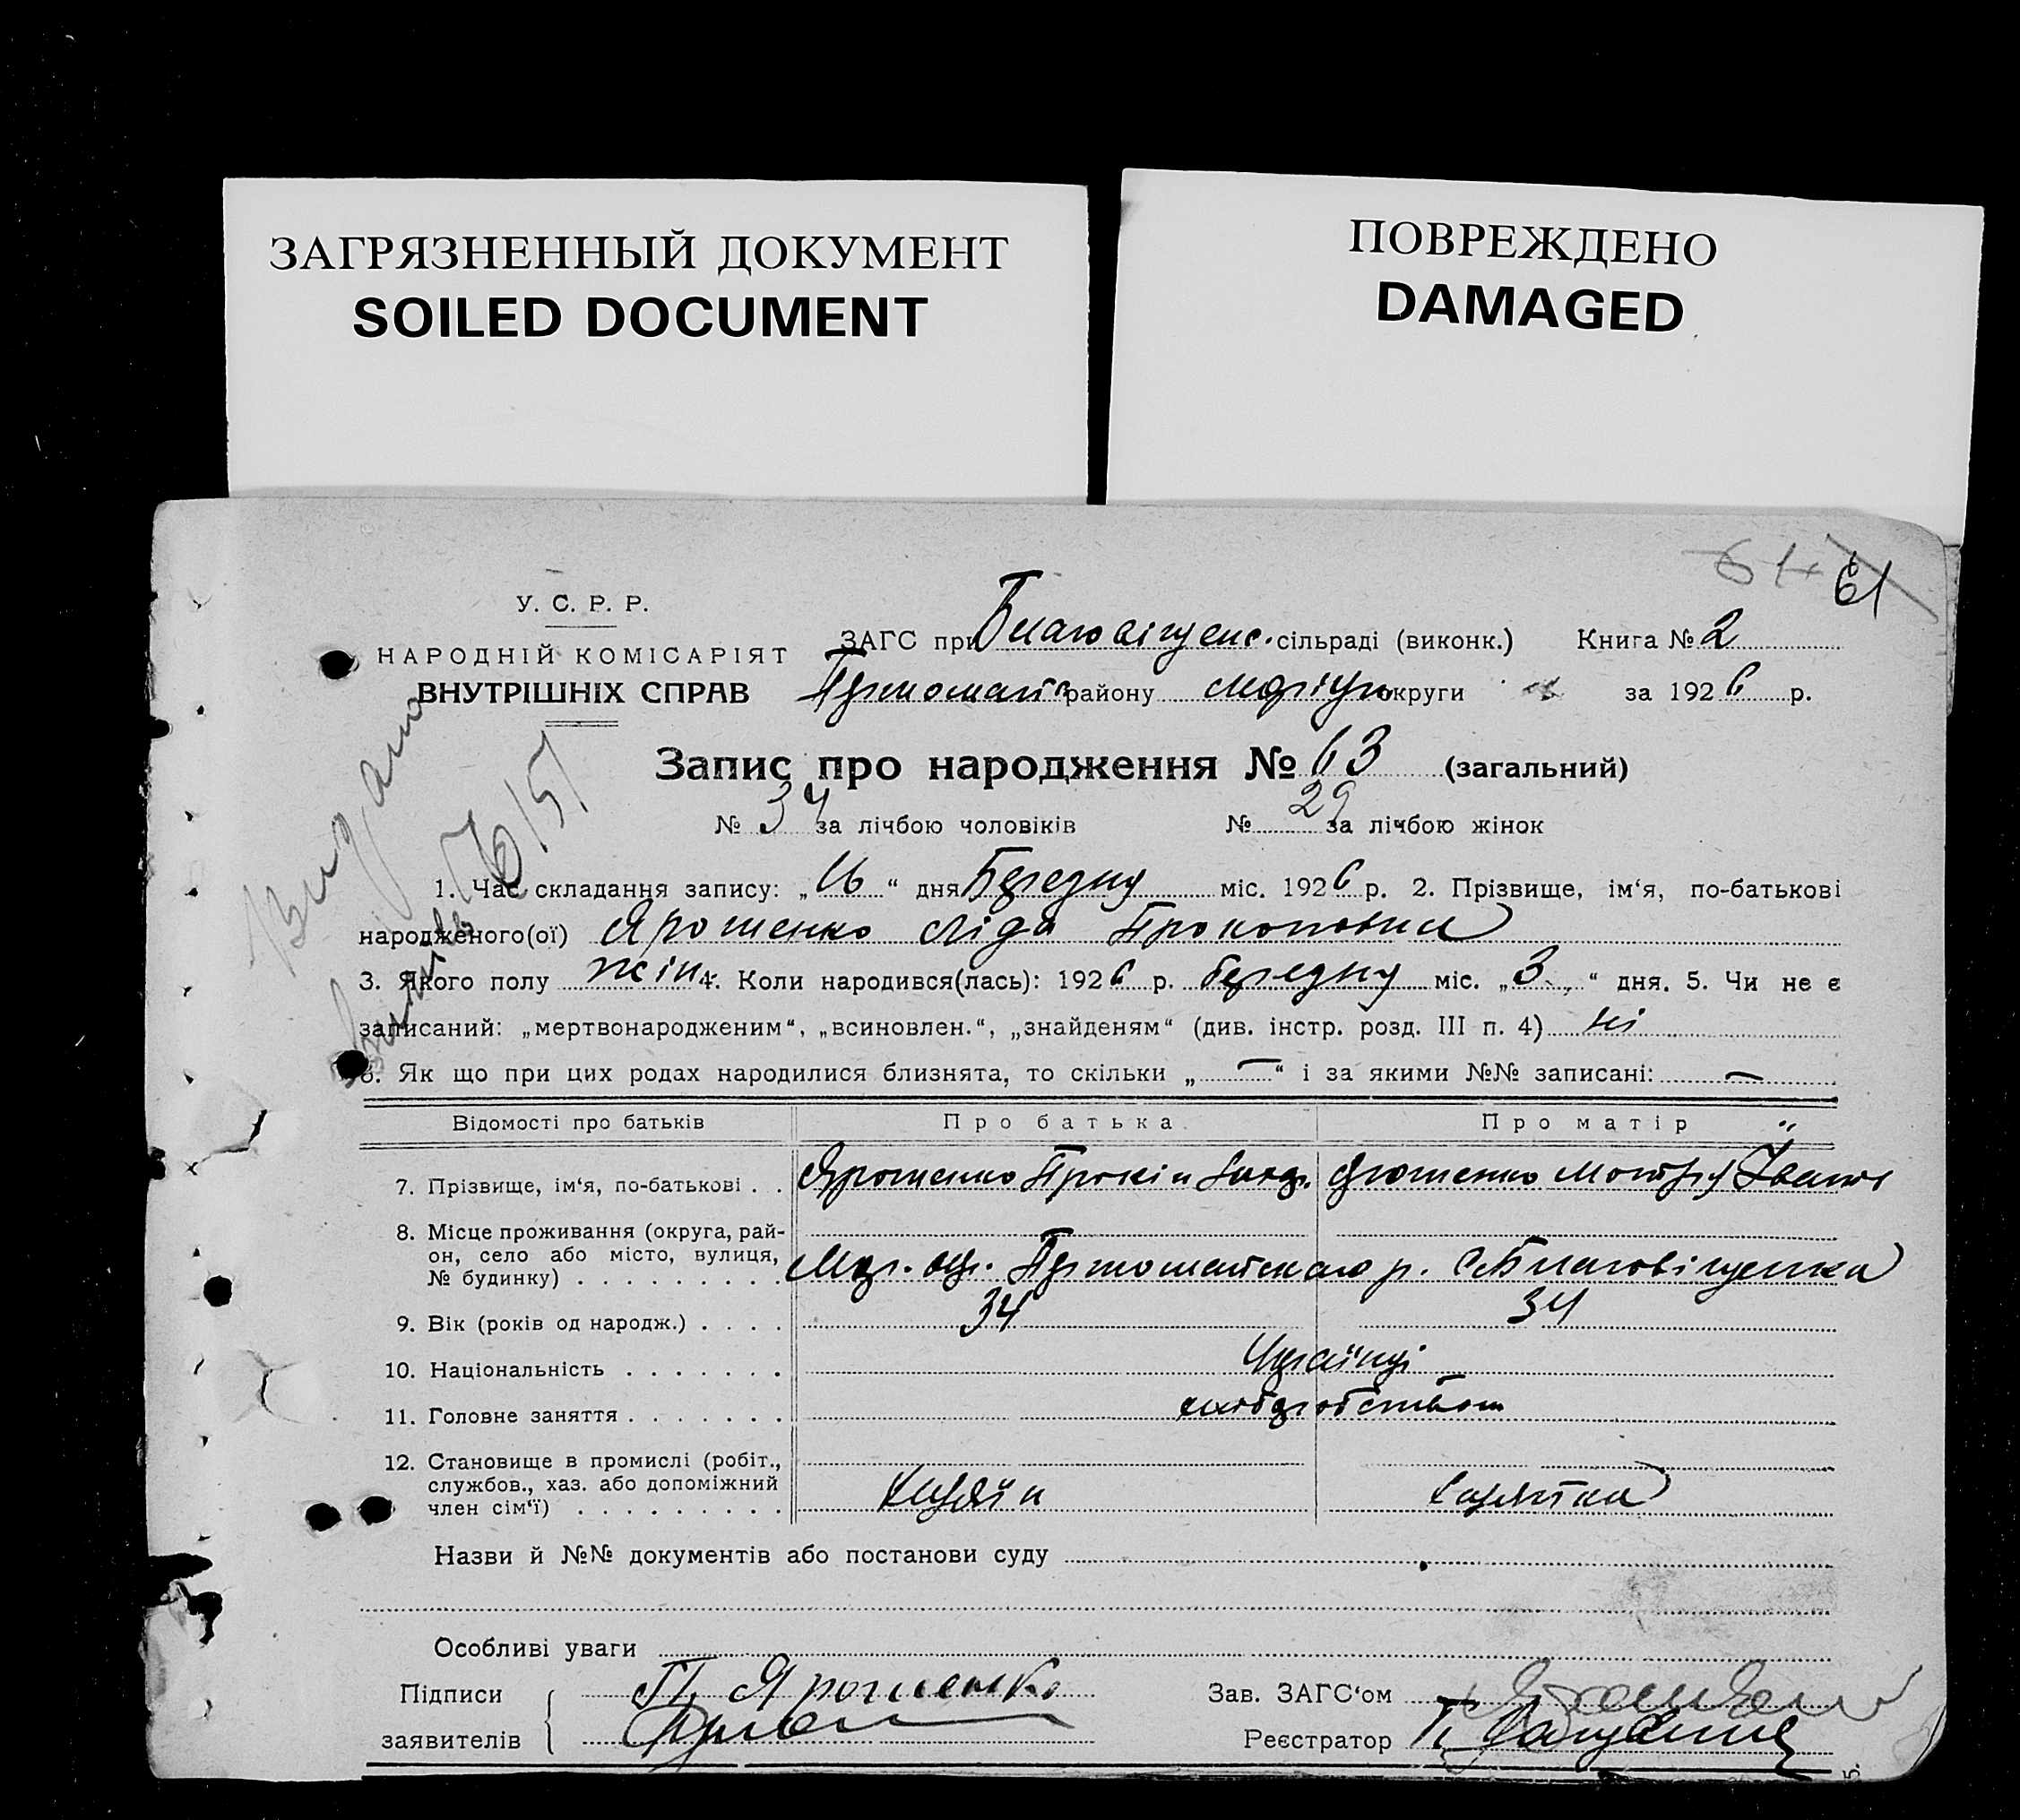 ЗАГРЯЗНЕННЫЙ ДОКУМЕНТ
SOILED DOCUMENT
ПОВРЕЖДЕНО
DAMAGED
61
У. С. Р. Р.
НАРОДНІЙ КОМІСАРІЯТ
ВНУТРІШНІХ СПРАВ
ЗАГС при Благовіщенс. сільраді (виконк.) Книга № 2
району округи за 1926 р.
Запис про народження № 63 (загальний)
№ 34 за лічбою чоловіків № 29 за лічбою жінок
1. Час складання запису: „16“ дня Березня міс. 1926 р. 2. Прізвище, ім‘я, по-батькові
народженого(ої) Ярошенко Ліда Прокоповна
3. Якого полу жін. 4. Коли народився(лась): 1926 р. березня міс. „3“ дня. 5. Чи не є
записаний: „мертвонародженим“, „всиновлен.“, „знайденям“ (див. інстр. розд. III п. 4) ні
6. Як що при цих родах народилися близнята, то скільки „—“ і за якими №№ записані: —
Відомості про батьків Про батька Про матір
7. Прізвище, ім‘я, по-батькові . . Ярошенко Прокіп Ярошенко Мотря
8. Місце проживання (округа, рай-
он, село або місто, вулиця,
№ будинку) . . . . . . . . . Мар. окр. р. с. Благовіщенка
9. Вік (років од народж.) . . . . 34 34
10. Національність . . . . . . . Українці
11. Головне заняття . . . . . . . хліборобством
12. Становище в промислі (робіт.,
службов., хаз. або допоміжний
член сім‘ї) . . . . . . . . .
Назви й №№ документів або постанови суду
Особливі уваги
Підписи П. Ярошенко Зав. ЗАГС‘ом
заявителів Реєстратор